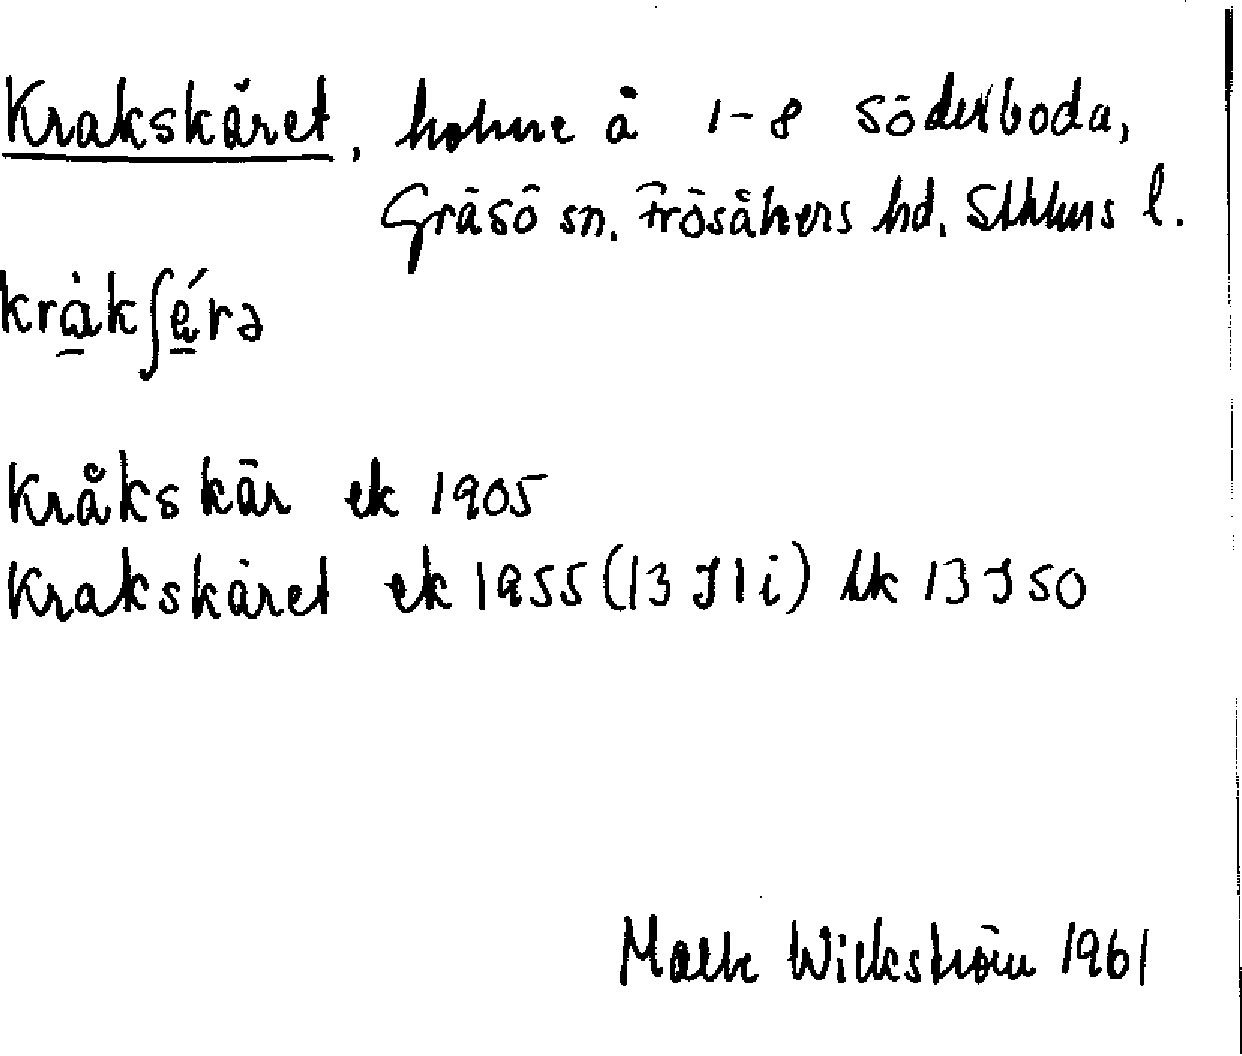 Krakskäret, holme å 1-8 Söderboda,
Gräsö sn. Frösåkers hd. Sthlms l.
kra̱kʃé̱rə
Kråkskär ek 1905
Krakskäret ek 1955 (13 J 1 i) hk 13 J SO
Wickström 1961